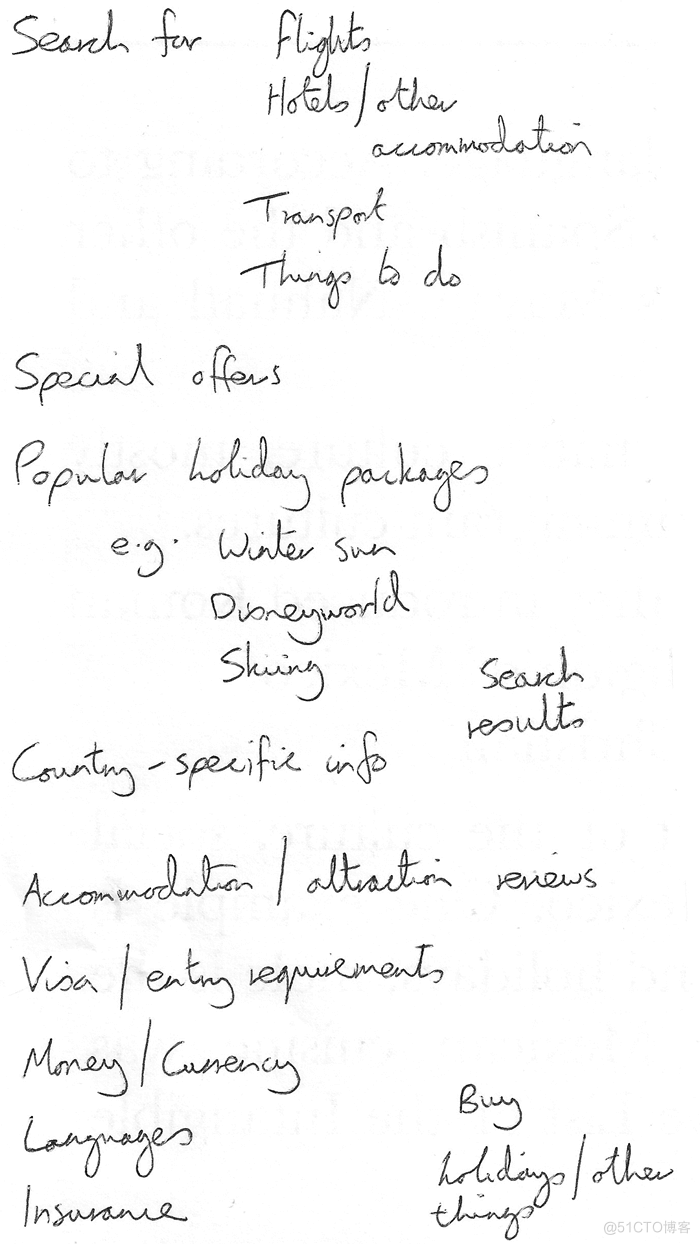 Search for Flights
Hotels/other
accommodation
Transport
Things to do
Special offers
Popular holiday packages
e.g. Winter sun
Disneyworld
Skiing
Search
results
Country-specific info
Accommodation / attraction reviews
Visa / entry requirements
Money / Currency
Languages
Insurance
Buy
holidays/other
things
@51CTO博客